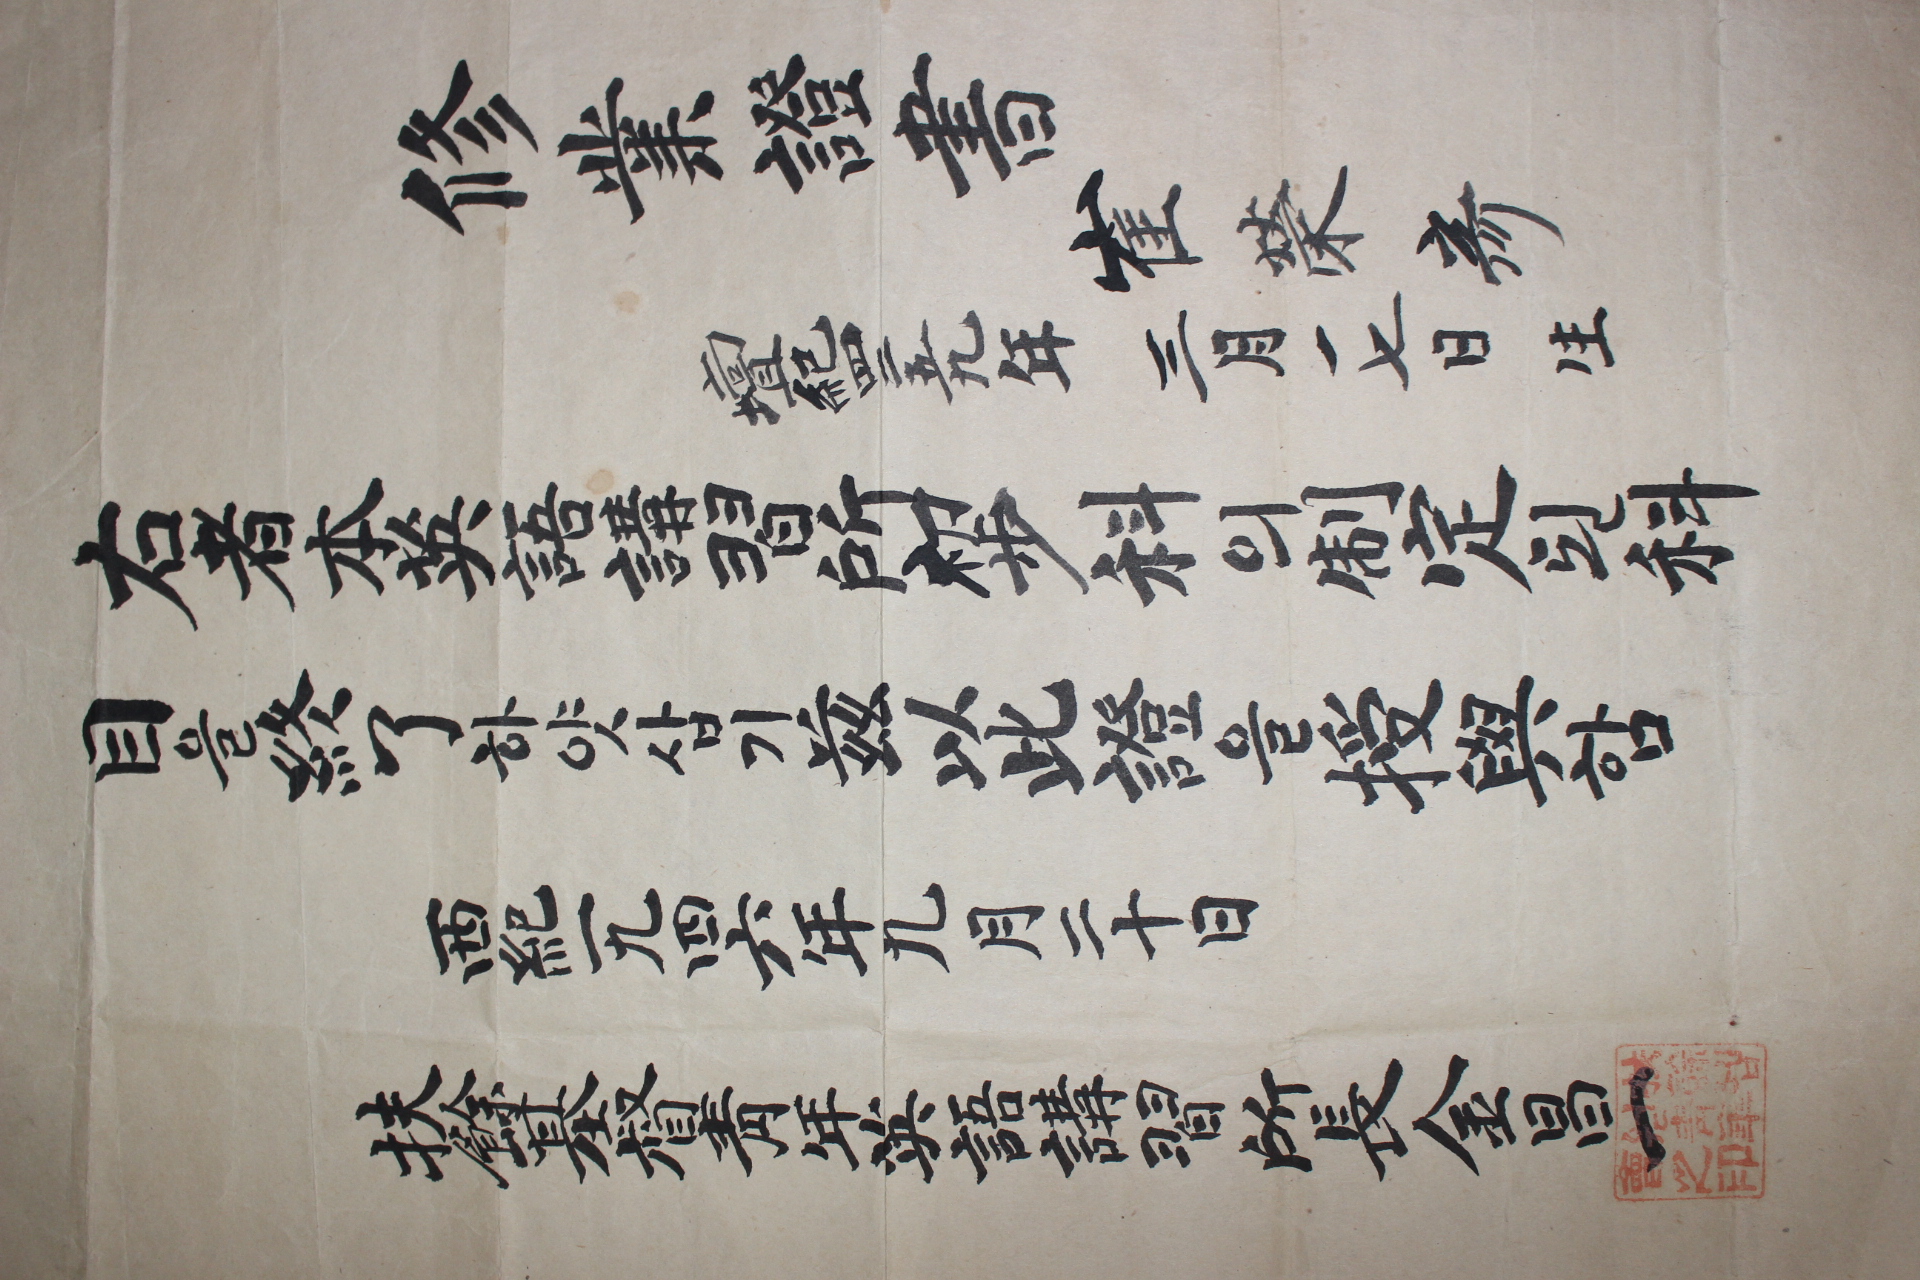 修業證書
崔榮彦
檀紀四二五九年 三月一七日生
右者本英語講習所初步科의制定된科
目을終了하얏삽기玆以此證을授與함
西紀一九四六年九月二十日
扶餘基督靑年英語講習所長金昌一
扶餘基
督靑年
會之印